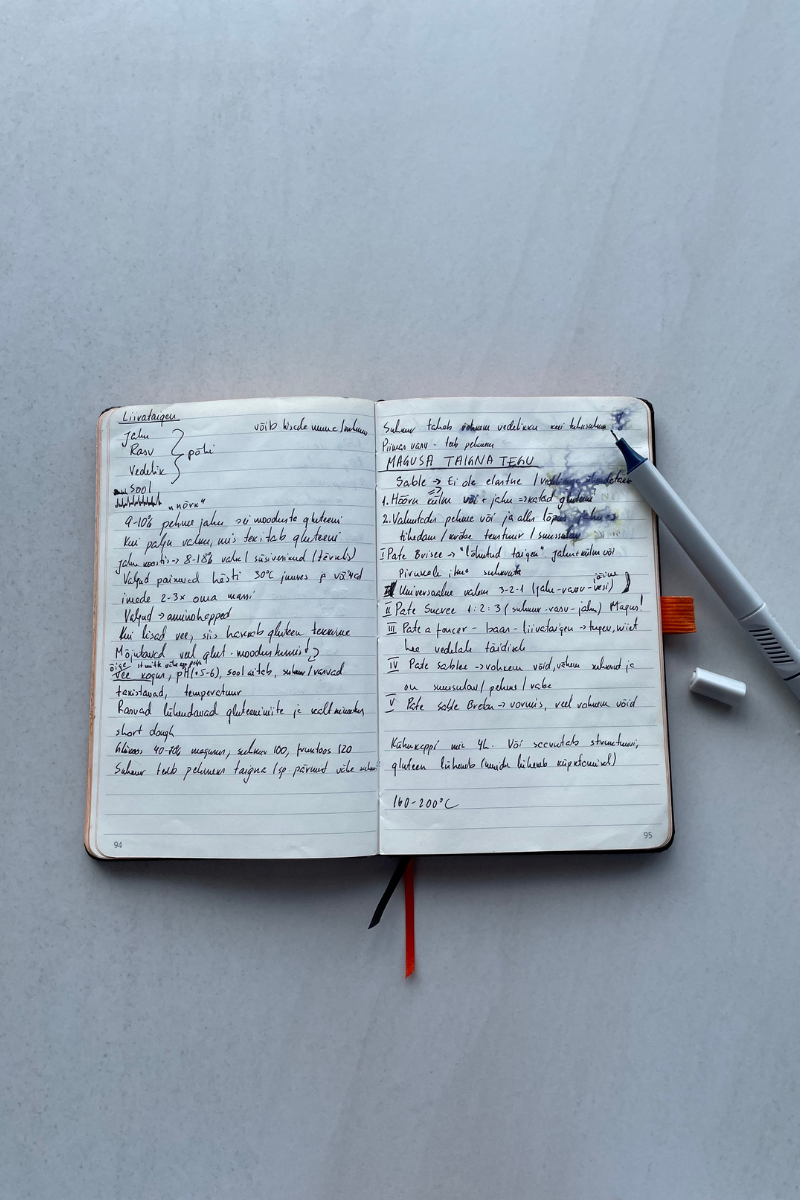 Liivataigen
Jahu
võib lisada muna/
Rasv
põhi
Vedelik
Sool
"nõrk"
9-10% pehme jahu → ei moodusta gluteeni
Kui palju valmu, mis tekitab gluteeni
jahu koostis → 8-18% valku / süsivesikud (tärklis)
Valgud paisuvad hästi 30°C juures ja võivad
imada 2-3x oma massi
Valgud → aminohapped
Kui lisad vee, siis hakkab gluteen tekkima
Mõjutavad veel glut. moodustumist
õige
vee kogus, pH(5-6), sool aitab, suhkur/rasvad
takistavad, temperatuur
Rasvad lühendavad gluteeniniite ja sealt
short dough
Glükoos 40-70% magusus, suhkur 100, fruktoos 120
Suhkur teeb pehmeks taigna (sp pärmist vähe
94
Suhkur tahab rohkem vedelikku kui
Piimas rasv - teeb pehmeks
MAGUSA TAIGNA TEGU
Sable → Ei ole elastne /
1. Hõõru külm või + jahu → katad gluteeni
2. Valmistada pehme või ja alles lõpus
tihedam / kindlam tekstuur /
I Pate Brisee → "lõhutud taigen" jahu+külm või
Pirukale ilma suhkruta
Universaalne valem 3-2-1 (jahu-rasv-vesi)
II Pate Sucree 1:2:3 (suhkur-rasv-jahu) Magus!
III Pate a foncer - baas - liivataigen → tugev, niiske
hea vedelale täidisele
IV Pate sablee → rohkem võid, vähem suhkrut ja
on suussulav / pehme / rabe
V Pate sable Breton → vormis, veel rohkem võid
Külmkappi min 4h. Või saavutab struktuuri,
gluteen lüheneb (muidu lüheneb küpsetamisel)
160-200°C
95